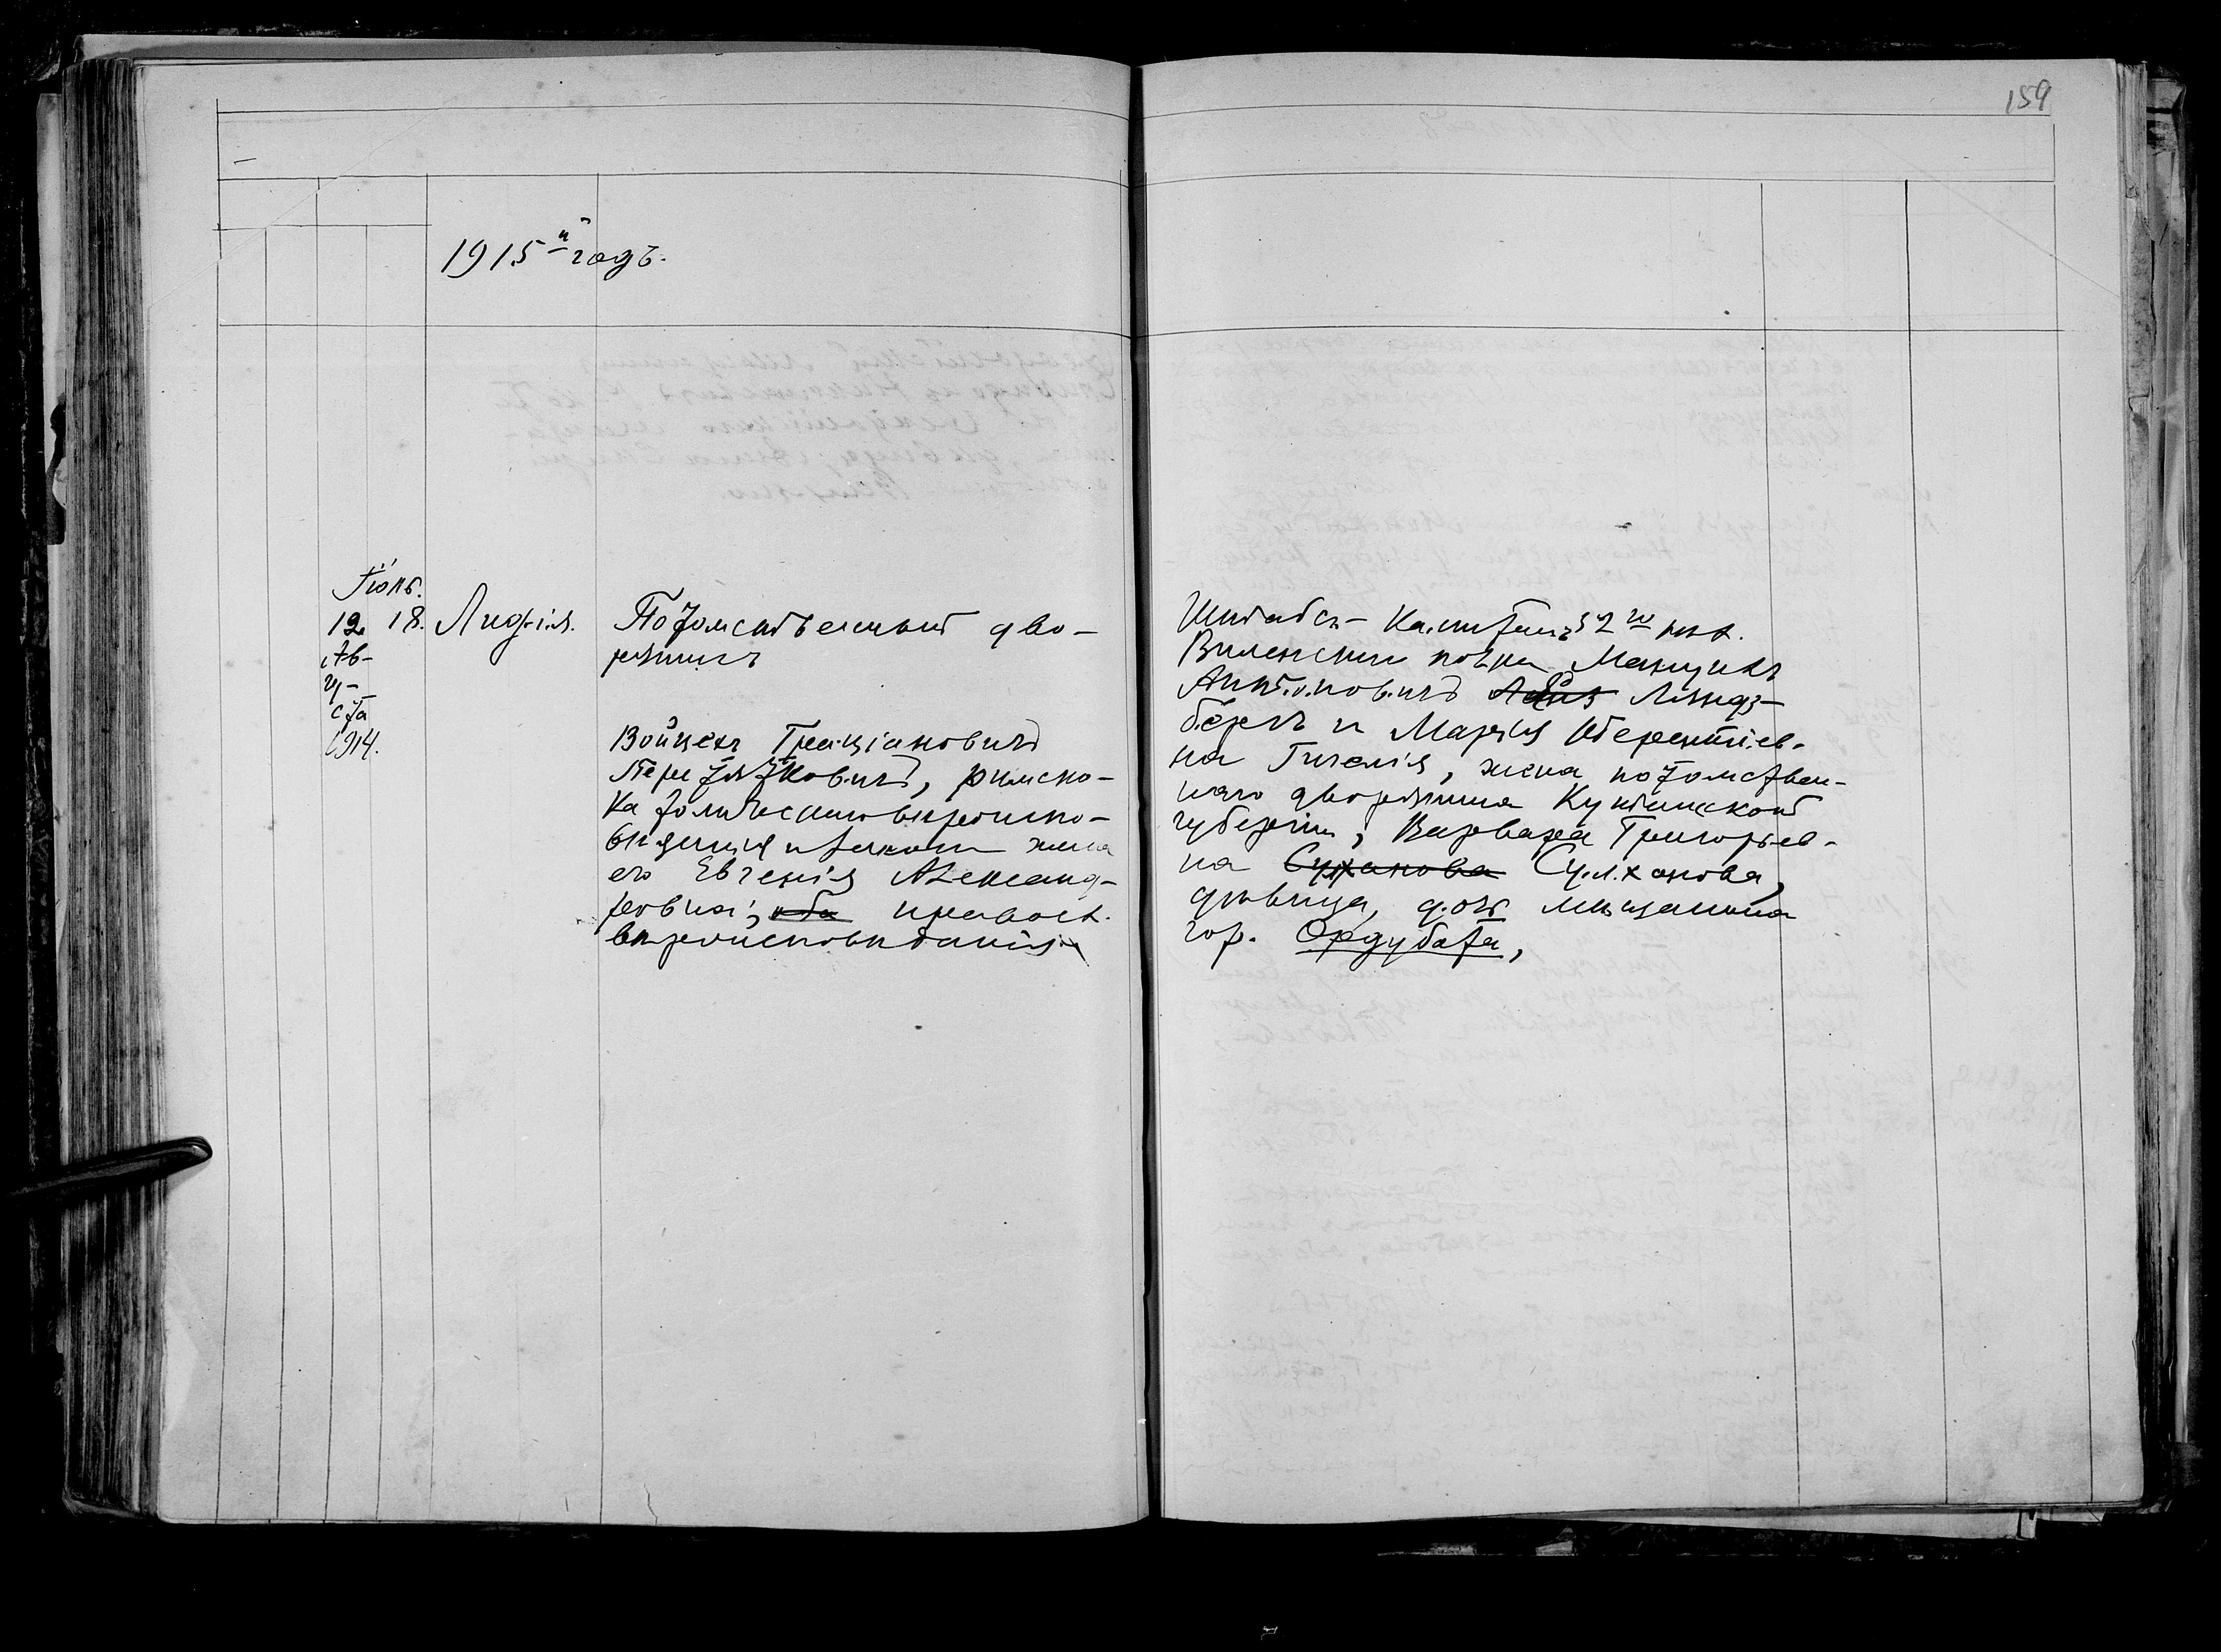 159
1915й годъ.
Іюль.
12 18.
Ав-
гу-
ста
1914.
Лидія.
Потомственный дво-
рянинъ
Войцехъ Граціановичъ
римско-
католическаго вѣроиспо-
вѣданія и законная жена
его Евгенія Александ-
ровна, оба правосл.
вѣроисповѣданія
Штабсъ-Капитанъ 52го пѣх.
Виленскаго полка
Антоновичъ Линдз-
бергъ и Марія
на жена потомствен-
наго дворянина Кутаисской
губерніи, Варвара Григорьев-
на Суханова Сулханова,
дѣвица, дочь мѣщанина
гор. Ордубата,